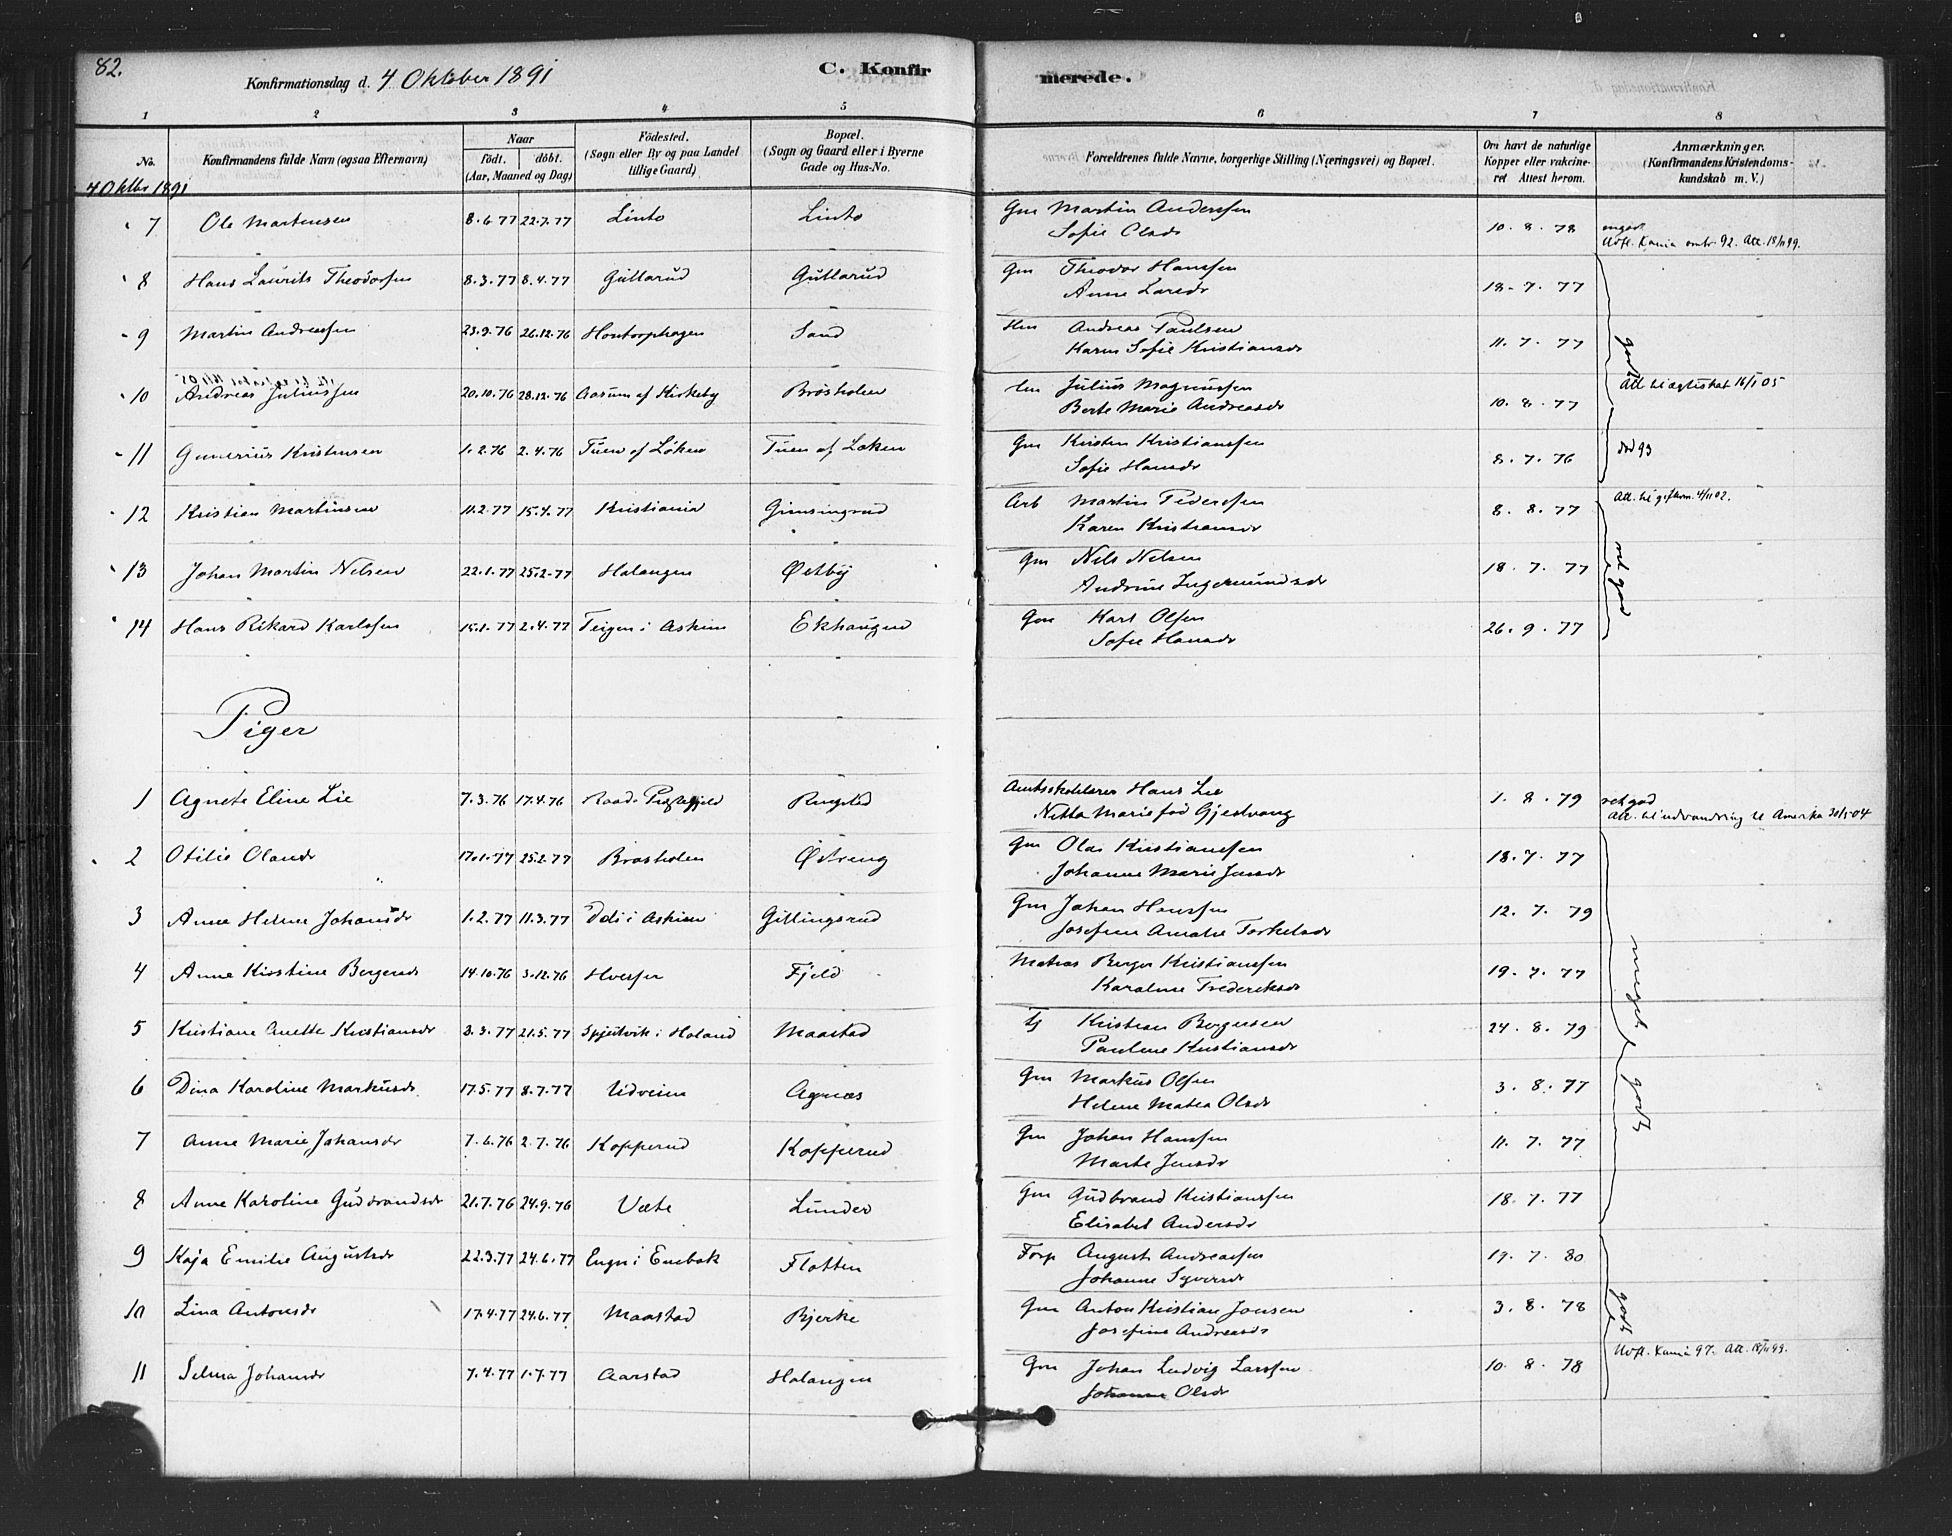 82.
Konfirmationsdag d. 4 Oktober 1891
C. Konfir merede.
1 2 3 4 5 6 7 8
No.
Konfirmandens fulde Navn (ogsaa Efternavn)
Naar
födt. döbt.
(Aar, Maaned og Dag)
Födested.
(Sogn eller By og paa Landet
tillige Gaard)
Bopæl.
(Sogn og Gaard eller i Byerne
Gade og Hus-No.
Forældrenes fulde Navne, borgerlige Stilling (Næringsvei) og Bopæl.
Om havt de naturlige
Kopper eller vakcine-
ret Attest herom.
Anmærkninger.
(Konfirmandens Kristendoms-
kundskab m. V.)
4 Oktbr 1891
7 Ole Martinsen 8.6.77 22.7.77 Linto Linto Gm Martin Andersen 10.8.78
Sofie Olsdr Att. 18/11 99.
8 Hans Laurits Theodorsen 8.3.77 8.4.77 Gullarud Gullarud Gm Theodor Hansen 18.7.77
Anne Larsdr
9 Martin Andreassen 23.9.76 26.12.76 Hontorphagen Sand Andreas Paulsen 11.7.77
Karen Sofie Kristiansdr
godt
10 Andreas Juliussen 20.10.76 28.12.76 Aarum af Kirkeby Brosholen Julius Magnussen 10.8.77 Att til ægteskab 16/1 05
Berte Marie Andreasdr
11 Gunerius Kristensen 1.2.76 2.4.76 Tuen af Løken Tuen af Løken Gm Kristen Kristiansen 8.7.76 død 93
Sofie Hansdr
12 Kristian Martinsen 11.2.77 15.4.77 Kristiania Gimsingrud Arb Martin Pedersen 8.8.77 Att. til 4/11 02.
Karen Kristiansdr
13 Johan Martin Nelsen 22.1.77 25.2.77 Halangen Østby Gm Nils Nelsen 18.7.77
Andrine Ingemundsdr
14 Hans Rikard Karlsen 15.1.77 2.4.77 Teigen i Askim Ekhaugen Gm Karl Olsen 26.9.77
Sofie Hansdr
Piger
1 Agnete Eline Lie 7.3.76 17.4.76 Ringstad Amtsskolelærer Hans Lie 1.8.79
Netta Marie fød Gjestvang Att. til udvandring til Amerika 30/5 04
2 Otilie Olausdr 17.1.77 25.2.77 Brosholen Østreng Gm Olas Kristiansen 18.7.77
Johanne Marie Jensdr
3 Anne Helene Johansdr 1.2.77 11.3.77 i Askim Gillingsrud Gm Johan Hansen 12.7.79
Josefine Amalie Torkelsdr
4 Anne Kirstine Bergersdr 14.10.76 3.12.76 Fjeld Berger Kristiansen 19.7.77
Karoline Frederiksdr
meget godt
5 Kristiane Anette Kristiansdr 3.3.77 21.5.77 Spjutvik i Høland Maastad Kristian Bergersen 24.8.79
Pauline Kristiansdr
6 Dina Karoline Markusdr 17.5.77 8.7.77 Udveien Agnæs Gm Markus Olsen 3.8.77
Helene Matea Olsdr
7 Anne Marie Johansdr 7.6.76 2.7.76 Kopperud Kopperud Gm Johan Hansen 11.7.77
Marte Jensdr
8 Anne Karoline Gudbrandsdr 21.7.76 24.9.76 Væte Lunder Gm Gudbrand Kristiansen 18.7.77
Elisabet Andersdr
9 Kaja Emilie Augustsdr 22.3.77 24.6.77 Engen i Enebak Flatten Forp August Andreassen 19.7.80
Johanne Syversdr
10 Lina Antonsdr 17.4.77 24.6.77 Maastad Bjerke Gm Anton Kristian Jonsen 3.8.78
Josefine Andreasdr
godt
11 Selma Johansdr 7.4.77 1.7.77 Aarstad Halangen Gm Johan Ludvig Larssen 10.8.78 Udfl. Kania 97. Att. 18/11 99.
Johanne Olsdr